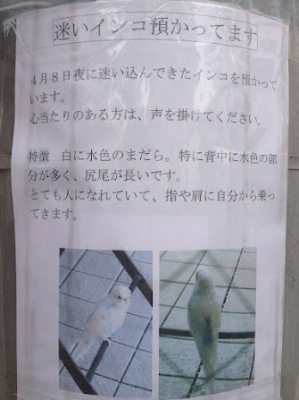 迷いインコ預かってます
４月８日夜に迷い込んできたインコを預かって
います。
心当たりのある方は、声を掛けてください。
特徴　白に水色のまだら。特に背中に水色の部
分が多く、尻尾が長いです。
とても人になれていて、指や肩に自分から乗っ
てきます。